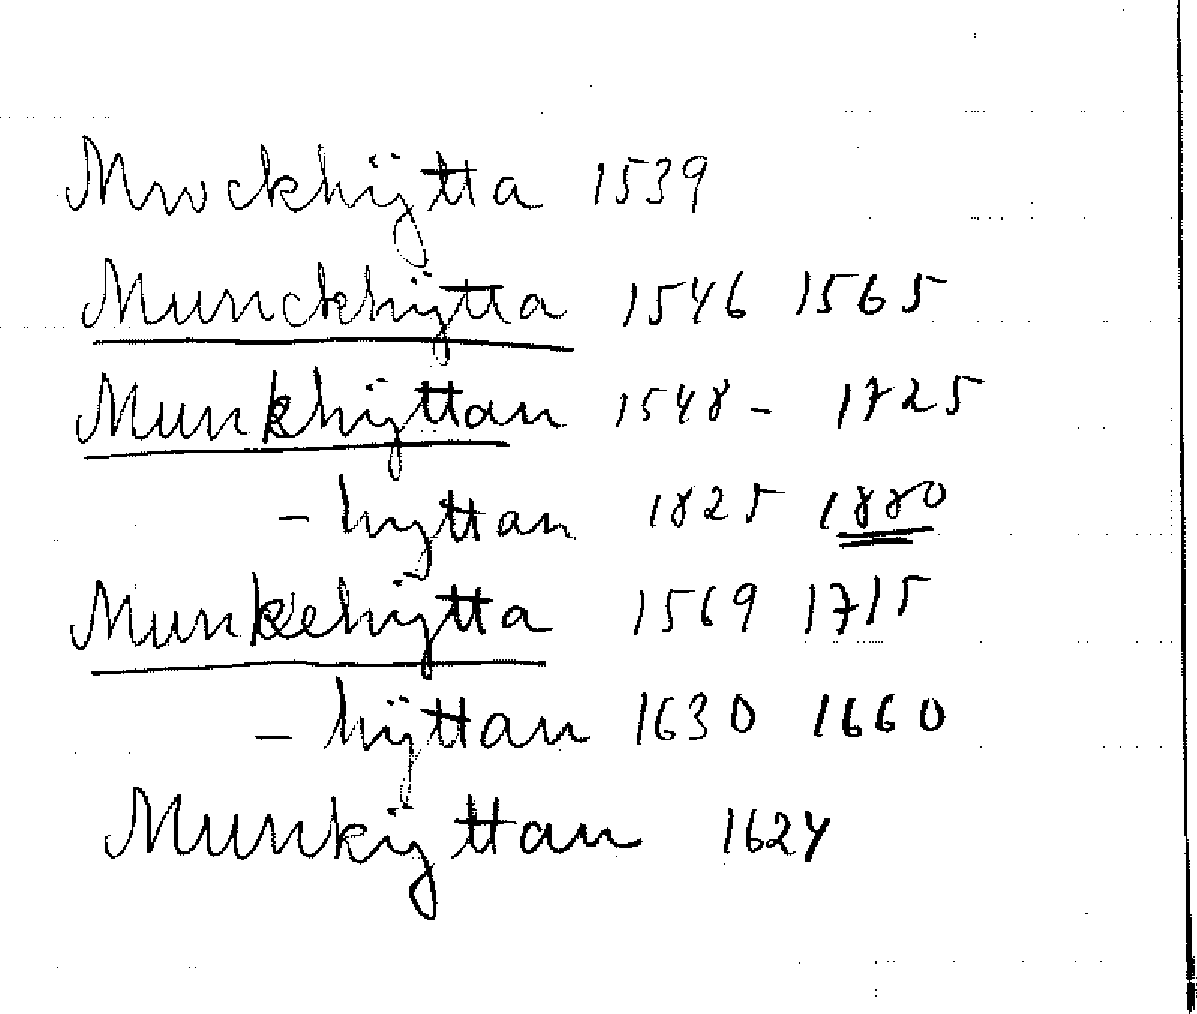 Mwockhÿtta 1539
Munckhÿtta 1546 1565
Munkhÿttan 1548 - 1725
- hyttan 1825 1880
Munkehÿtta 1569 1715
- hÿttan 1630 1660
Munkÿttan 1624